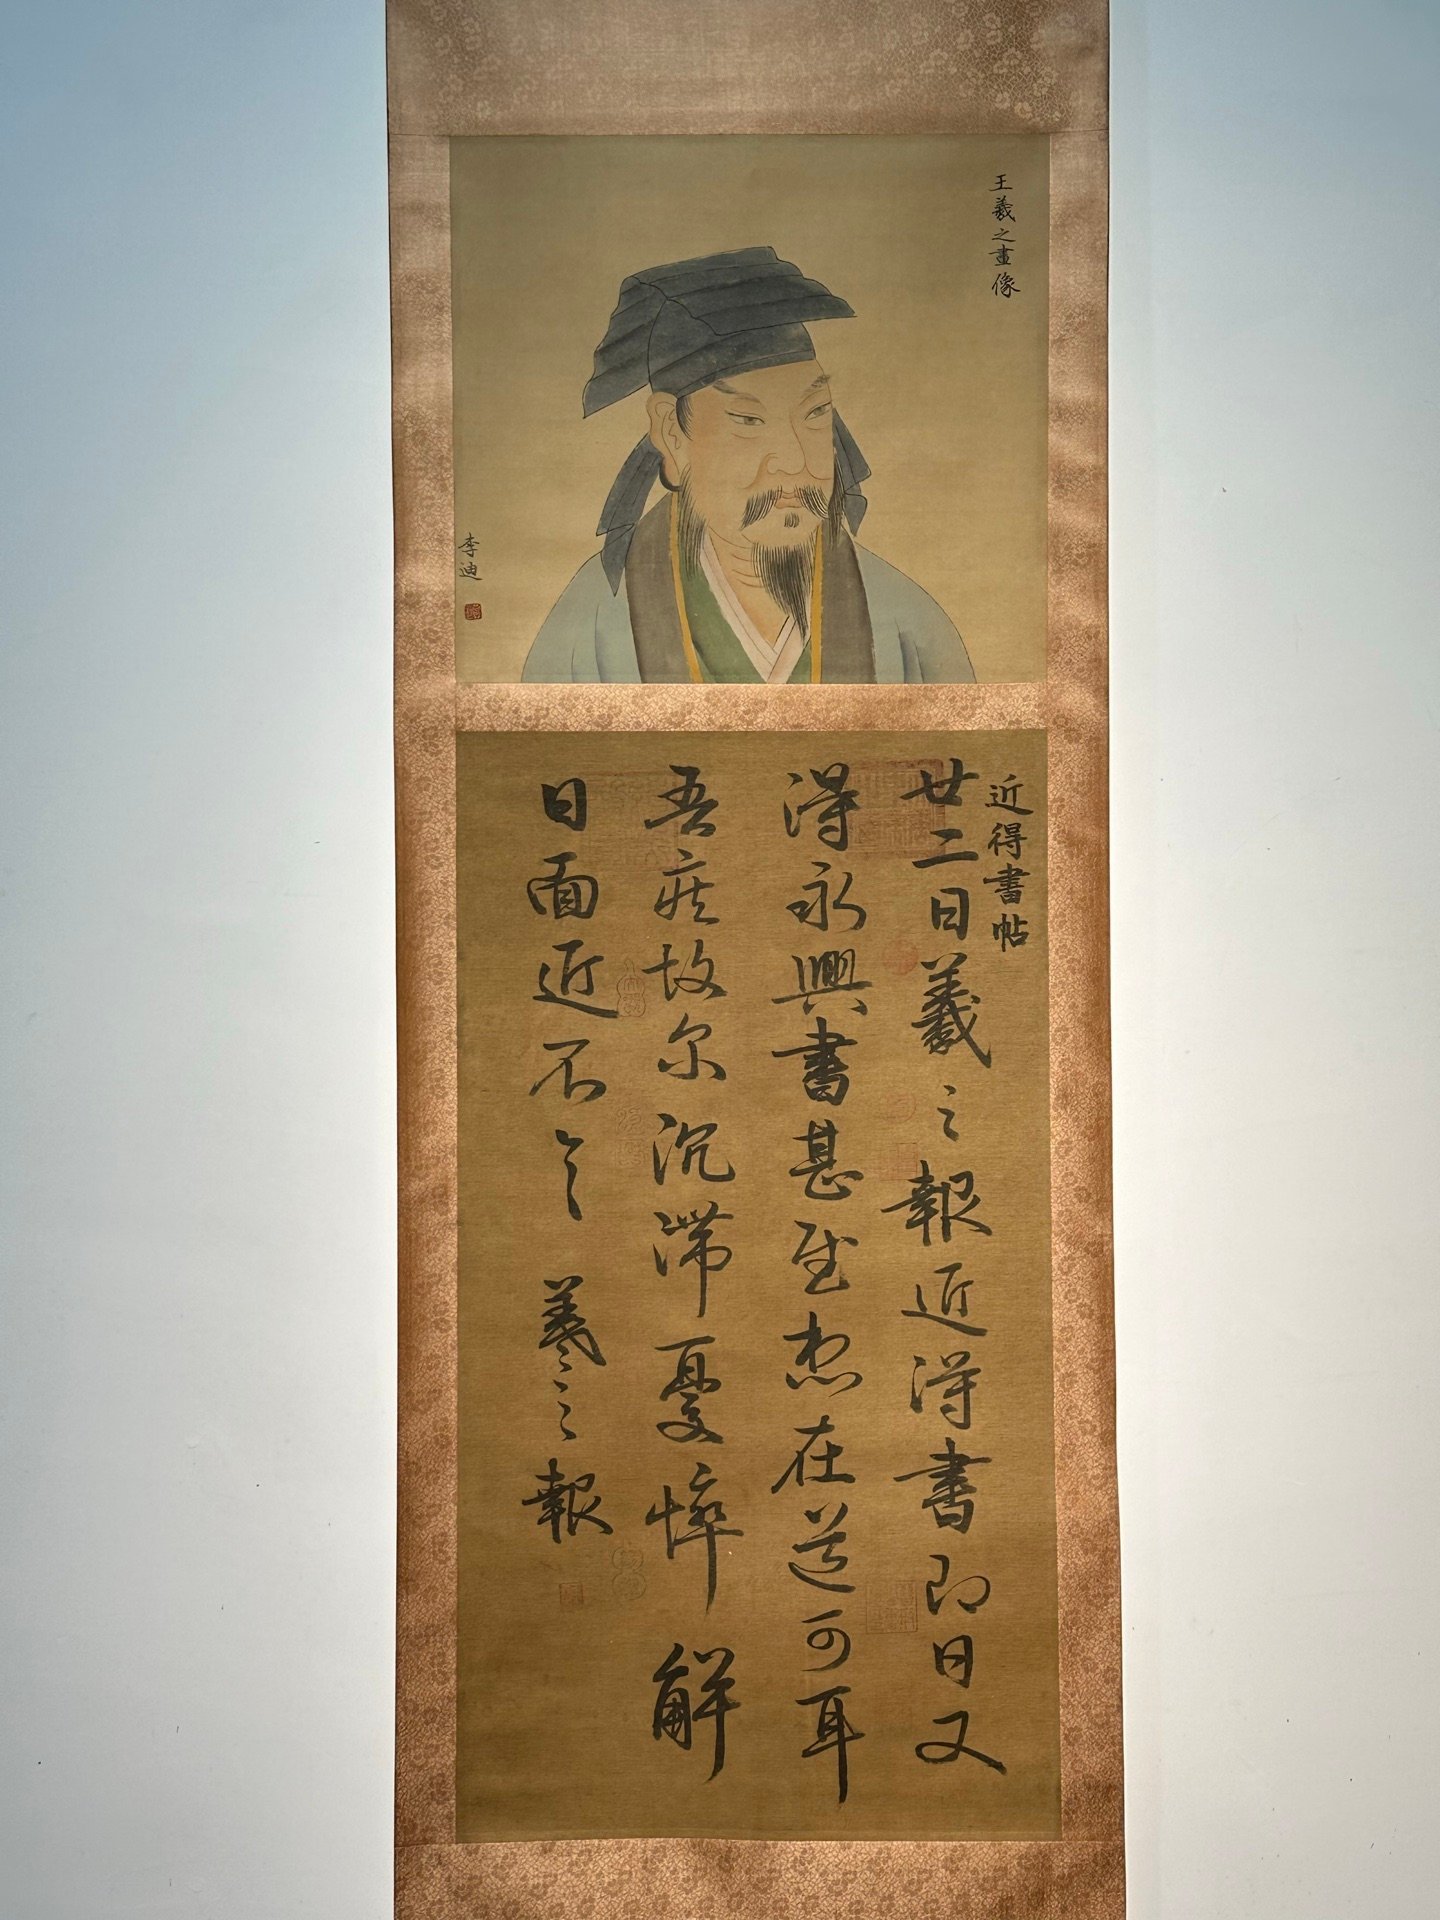 王羲之畫像
李迪
近得書帖
廿二日羲之報近得書即日又
得永興書甚慰想在道可耳
吾疾故爾沉滯憂悴解
日面近不具羲之報